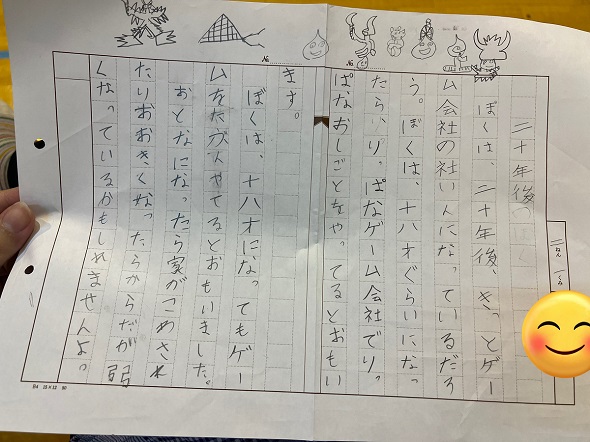 二十年後の
ぼくは、二十年後、きっとゲー
ム会社の社いんになっているだろ
う。ぼくは、十八才ぐらいになっ
たら、りっぱなゲーム会社でりっ
ぱなおしごとをやってるとおもい
ます。
ぼくは、十八才になってもゲー
ムをたぶんやてるとおもいました。
おとなになったら家がこわされ
たりおおきくなったらからだが弱
くなっているかもしれませんよっ。
№
№
ねん
くみ